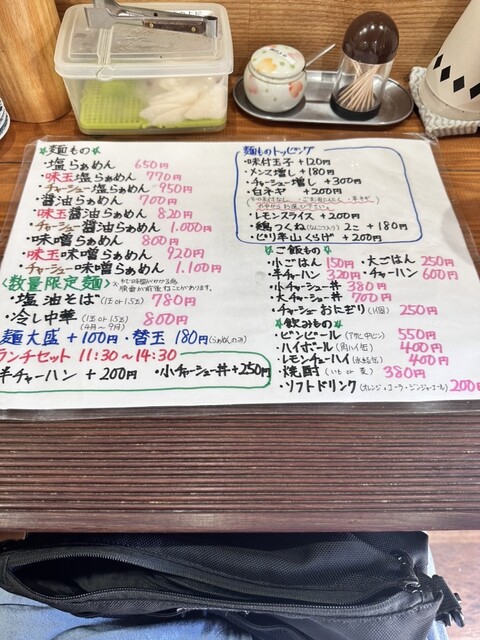 ☆麺もの☆
・塩らぁめん 650円
・味玉塩らぁめん 770円
・チャーシュー塩らぁめん 950円
・醤油らぁめん 700円
・味玉醤油らぁめん 820円
・チャーシュー醤油らぁめん 1.000円
・味噌らぁめん 800円
・味玉味噌らぁめん 920円
・チャーシュー味噌らぁめん 1.100円
〈数量限定麺〉
・塩油そば(1玉or1.5玉) 780円
・冷し中華(1玉or1.5玉) 800円
(4月〜9月)
麺大盛+100円・替玉 180円(らぁめんのみ)
ランチセット 11:30〜14:30
半チャーハン +200円 ・小チャーシュー丼+250円
麺ものトッピング
・味付玉子 +120円
・メンマ増し +180円
・チャーシュー増し +300円
・白ネギ +200円
・レモンスライス +200円
・鶏つくね(なんこつ入り)2こ +180円
・ピリ辛山くらげ +200円
☆ご飯もの☆
・小ごはん 150円 ・大ごはん 250円
・半チャーハン 320円 ・チャーハン 600円
・小チャーシュー丼 380円
・大チャーシュー丼 700円
・チャーシューおにぎり(1個) 250円
☆飲みもの☆
・ビンビール(アサヒ中ビン) 550円
・ハイボール(角ハイ缶) 400円
・レモンチューハイ(氷結缶) 400円
・焼酎(いもor麦) 380円
・ソフトドリンク(オレンジ・コーラ・ジンジャエール) 200円